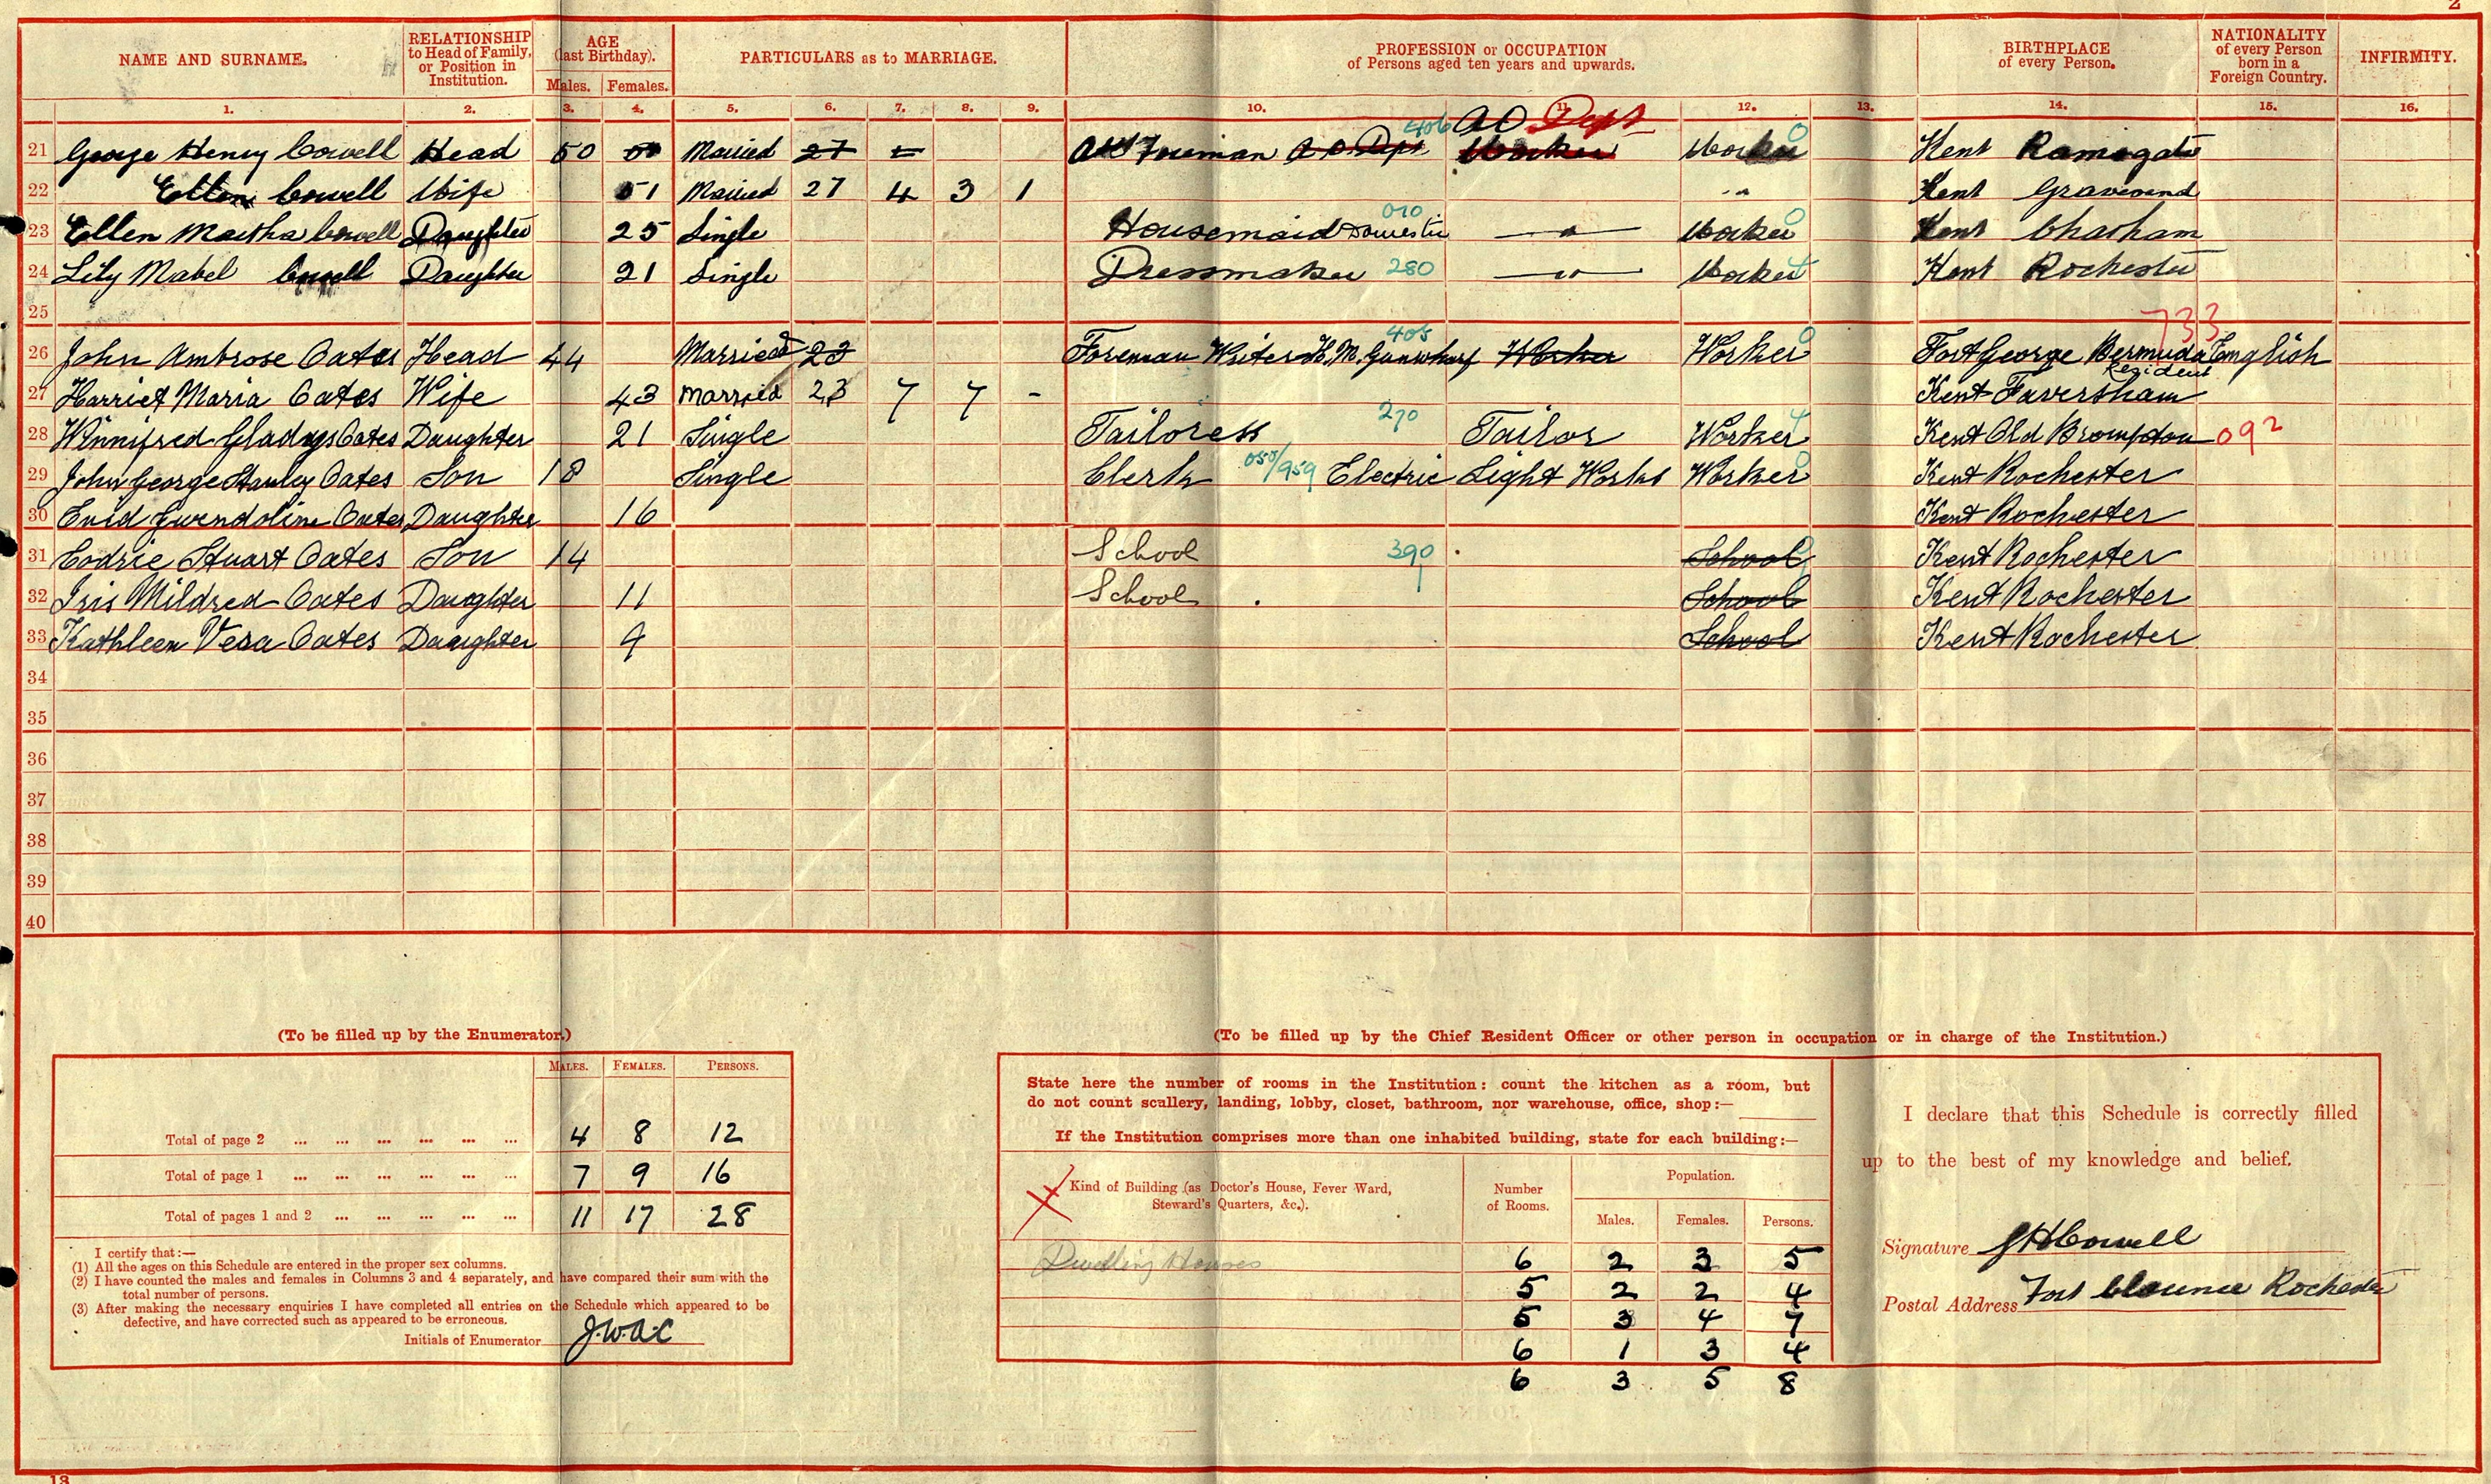 2
NAME AND SURNAME. RELATIONSHIP to Head of Family, or Position in Institution. AGE (last Birthday). Males. Females. PARTICULARS as to MARRIAGE. PROFESSION or OCCUPATION of Persons aged ten years and upwards. BIRTHPLACE of every Person. NATIONALITY of every Person born in a Foreign Country. INFIRMITY.
1. 2. 3. 4. 5. 6. 7. 8. 9. 10. 11. 12. 13. 14. 15. 16.
406 AO Dept
21 George Henry Cowell Head 50 Married 27 Foreman A O Dept Worker Worker 0 Kent Ramsgate
22 Ellen Cowell Wife 51 Married 27 4 3 1 Kent Gravesend
23 Ellen Martha Cowell Daughter 25 Single Housemaid Domestic 010 Worker 0 Kent Chatham
24 Lily Mabel Cowell Daughter 21 Single Dressmaker 280 Worker Kent Rochester
25
733
26 John Ambrose Oates Head 44 Married 23 Foreman Writer H.M. Gunwharf 405 Worker Worker 0 Fort George Bermuda English
Resident
27 Harriet Maria Oates Wife 43 Married 23 7 7 - Kent Faversham
28 Winnifred Gladys Oates Daughter 21 Single Tailoress 270 Tailor Worker 4 Kent Old Brompton 092
29 John George Stanley Oates Son 18 Single Clerk 050/959 Electric Light Works Worker 0 Kent Rochester
30 Enid Gwendoline Oates Daughter 16 Kent Rochester
31 Cedric Stuart Oates Son 14 School 390 School Kent Rochester
32 Iris Mildred Oates Daughter 11 School School Kent Rochester
33 Kathleen Vera Oates Daughter 9 School Kent Rochester
34
35
36
37
38
39
40
(To be filled up by the Enumerator.)
MALES. FEMALES. PERSONS.
Total of page 2 ... ... ... ... ... ... 4 8 12
Total of page 1 ... ... ... ... ... ... 7 9 16
Total of pages 1 and 2 ... ... ... ... ... 11 17 28
I certify that:—
(1) All the ages on this Schedule are entered in the proper sex columns.
(2) I have counted the males and females in Columns 3 and 4 separately, and have compared their sum with the
total number of persons.
(3) After making the necessary enquiries I have completed all entries on the Schedule which appeared to be
defective, and have corrected such as appeared to be erroneous.
Initials of Enumerator J.W.A.C
(To be filled up by the Chief Resident Officer or other person in occupation or in charge of the Institution.)
State here the number of rooms in the Institution: count the kitchen as a room, but
do not count scullery, landing, lobby, closet, bathroom, nor warehouse, office, shop:—
If the Institution comprises more than one inhabited building, state for each building:—
Kind of Building (as Doctor's House, Fever Ward, Steward's Quarters, &c.). Number of Rooms. Population. Males. Females. Persons.
Dwelling Houses 6 2 3 5
5 2 2 4
5 3 4 7
6 1 3 4
6 3 5 8
I declare that this Schedule is correctly filled
up to the best of my knowledge and belief.
Signature G H Cowell
Postal Address Fort Clarence Rochester
13